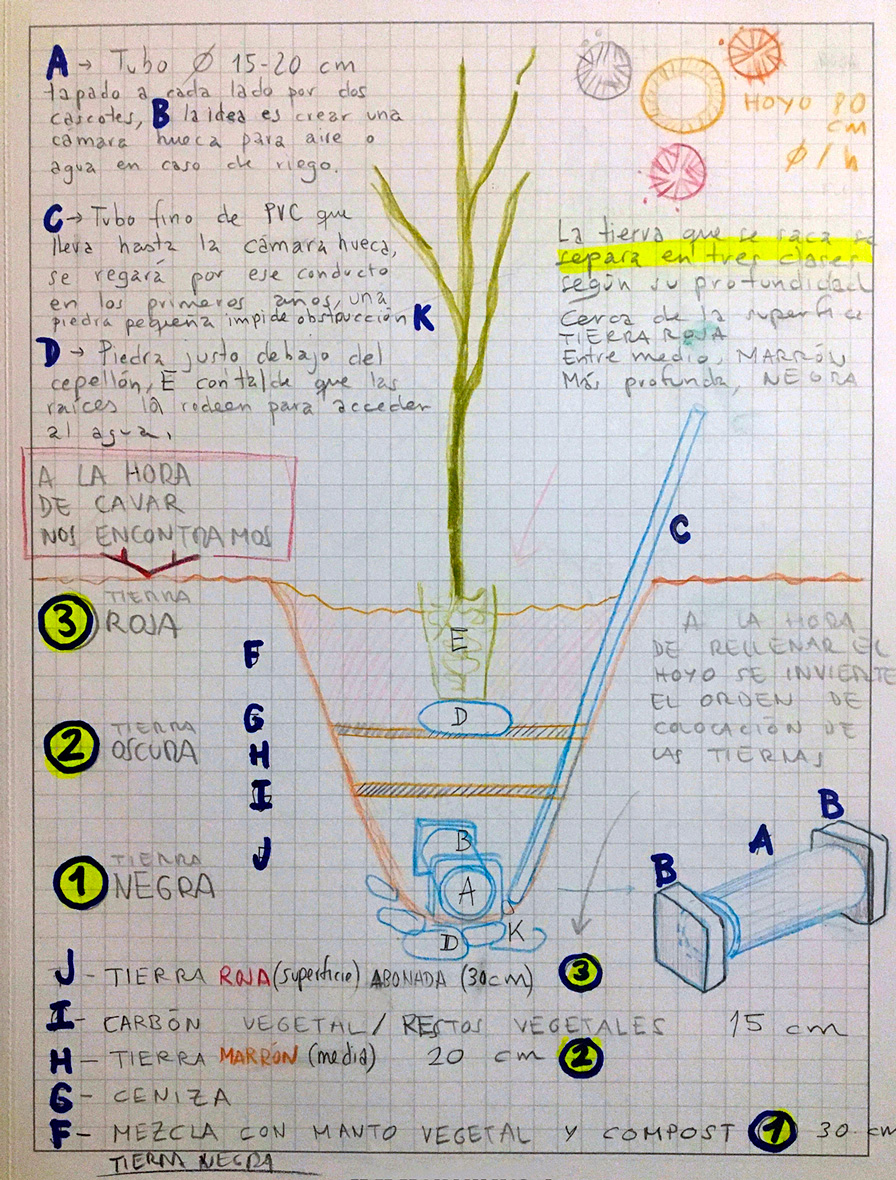 A → Tubo Ø 15-20 cm
tapado a cada lado por dos
cascotes, B la idea es crear una
cámara hueca para aire o
agua en caso de riego.
C → Tubo fino de PVC que
lleva hasta la cámara hueca,
se regará por ese conducto
en los primeros años, una
piedra pequeña impide obstrucción K
D → Piedra justo debajo del
cepellón, E con tal de que las
raíces la rodeen para acceder
al agua.
HOYO 80
cm
Ø / h
La tierra que se saca se
separa en tres clases
según su profundidad
Cerca de la superficie
TIERRA ROJA
Entre medio, MARRÓN
Más profunda, NEGRA
A LA HORA
DE CAVAR
NOS ENCONTRAMOS
3 TIERRA
ROJA
2 TIERRA
OSCURA
1 TIERRA
NEGRA
F
G
H
I
J
E
D
B
A
D
K
C
A LA HORA
DE RELLENAR EL
HOYO SE INVIERTE
EL ORDEN DE
COLOCACIÓN DE
LAS TIERRAS
B
A
B
J - TIERRA ROJA (superficie) ABONADA (30cm) 3
I - CARBÓN VEGETAL / RESTOS VEGETALES 15 cm
H - TIERRA MARRÓN (media) 20 cm 2
G - CENIZA
F - MEZCLA CON MANTO VEGETAL Y COMPOST 1 30 cm
TIERRA NEGRA